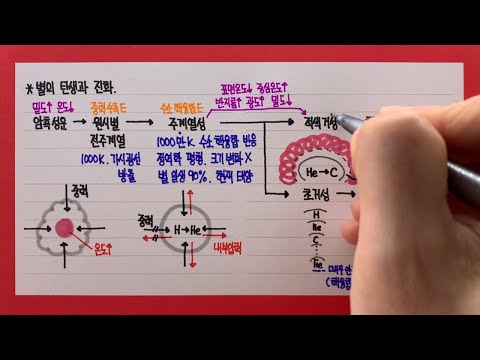 * 별의 탄생과 진화.
표면온도↓ 중심온도↑
반지름↑ 광도↑ 밀도↓
밀도↑ 온도↓
중력수축E
수소핵융합E
암흑성운
원시별
주계열성
적색거성
전주계열
1000K. 가시광선
방출
1000만K 수소 핵융합 반응
정역학 평형. 크기 변화 X
별 일생 90%. 현재 태양
He→C
초거성
중력
온도↑
중력
H→He
내부압력
H
He
C
Fe
(핵융합